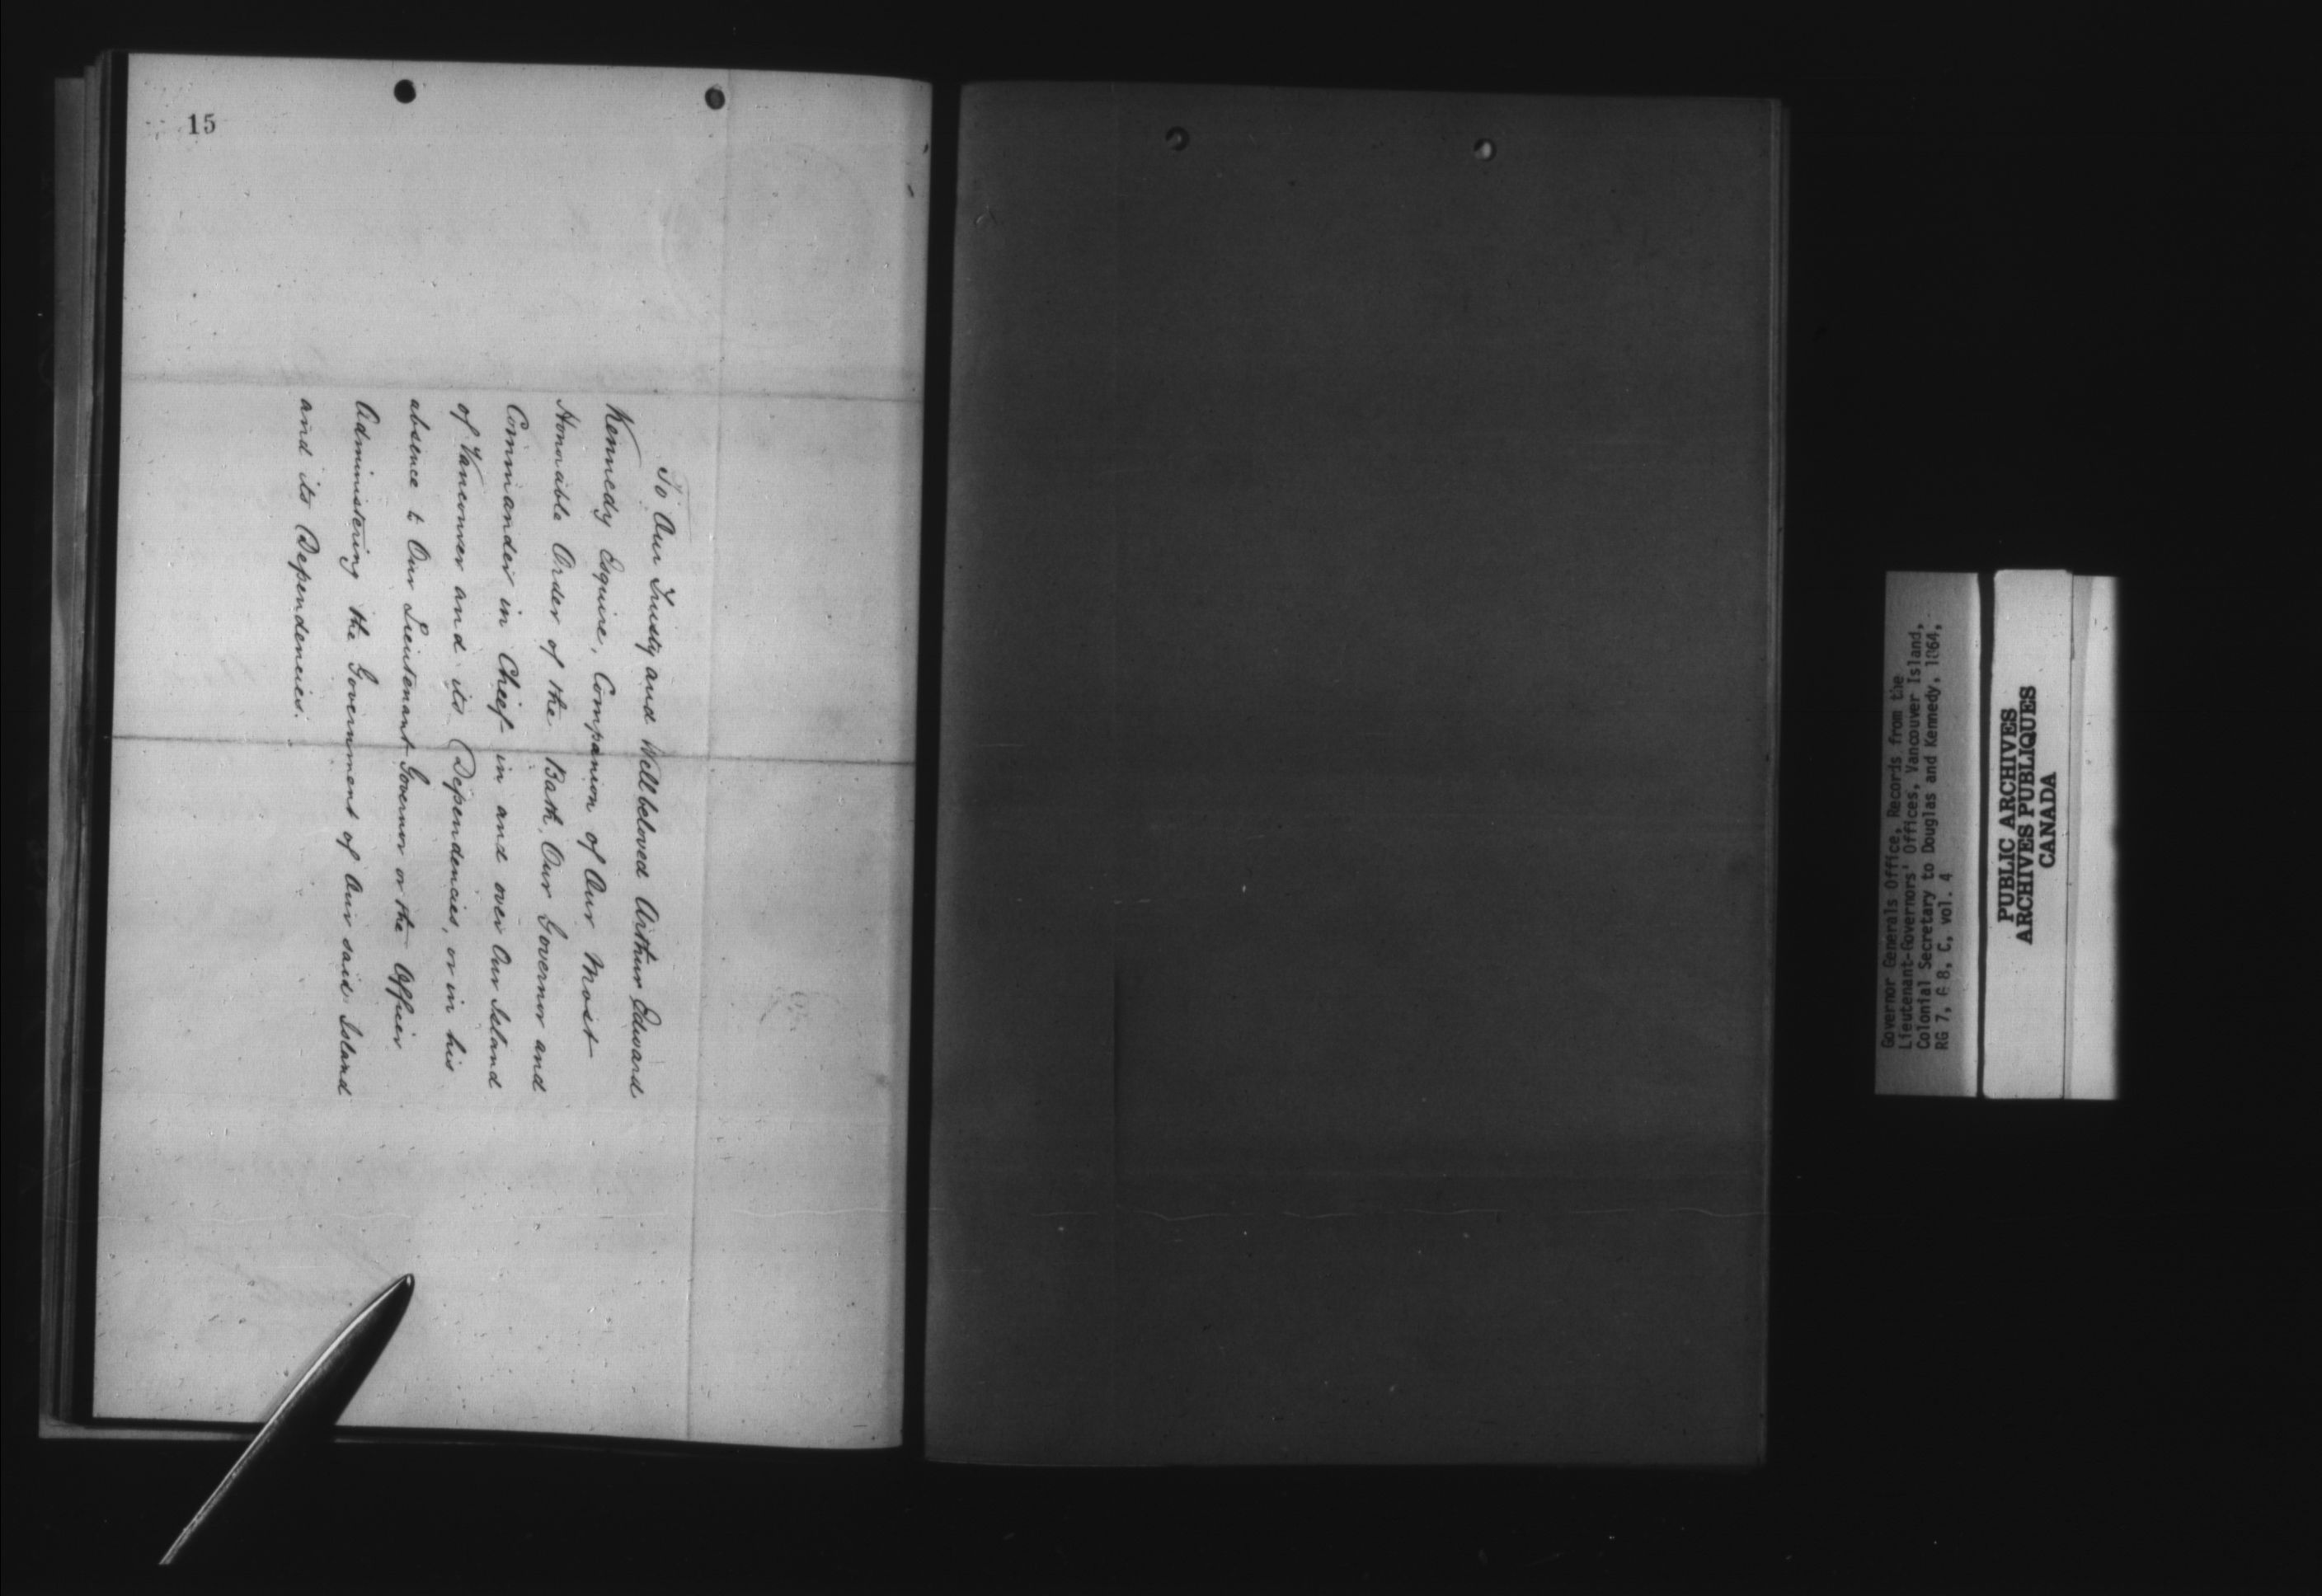 15
To Our Trusty and Wellbeloved Arthur Edward
Kennedy Esquire, Companion of Our Most
Honorable Order of the Bath, Our Governor and
Commander in Chief in and over Our Island
of Vancouver and its Dependencies, or in his
absence to Our Lieutenant Governor or the Officer
Administering the Government of Our said Island
and its Dependencies.
Governor Generals Office, Records from the
Lieutenant-Governors' Offices, Vancouver Island,
Colonial Secretary to Douglas and Kennedy, 1864,
RG 7, G 8, C, vol. 4
PUBLIC ARCHIVES
ARCHIVES PUBLIQUES
CANADA